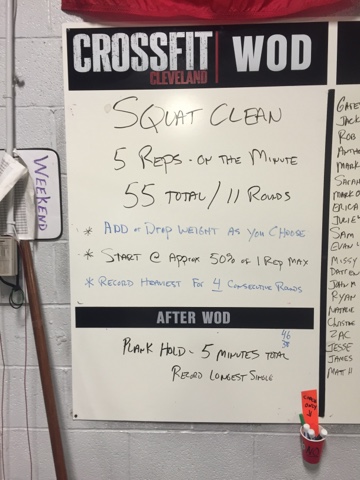 CROSSFIT
CLEVELAND
WOD
SQUAT CLEAN
5 REPS - ON THE MINUTE
55 TOTAL / 11 ROUNDS
* ADD OR DROP WEIGHT AS YOU CHOOSE
* START @ APPROX 50% OF 1 REP MAX
* RECORD HEAVIEST FOR 4 CONSECUTIVE ROUNDS
AFTER WOD
PLANK HOLD - 5 MINUTES TOTAL
RECORD LONGEST SINGLE
46
38
WEEKEND
JACK
ROB
MARK
SARAH
MARK O
ERICA
JULIE
SAM
EVAN
MISSY
JOHN M
RYAN
NATALIE
CHRISTINE
ZAC
JESSE
JAMES
MATT